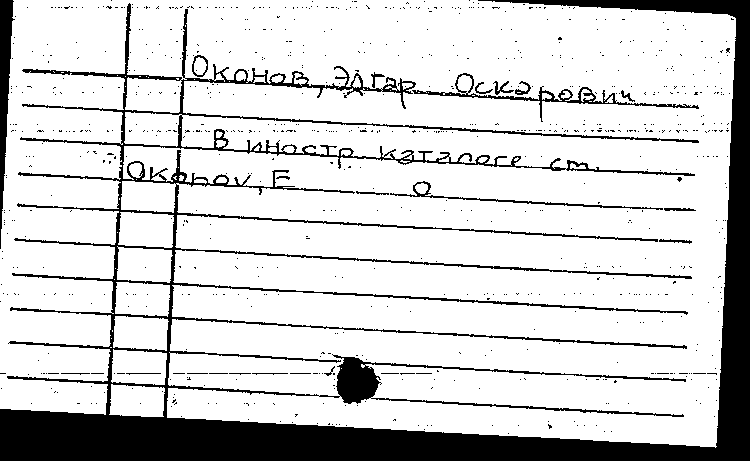 Оконов, Эдгар Оскарович
В иностр каталоге ст.
Okonov, E O